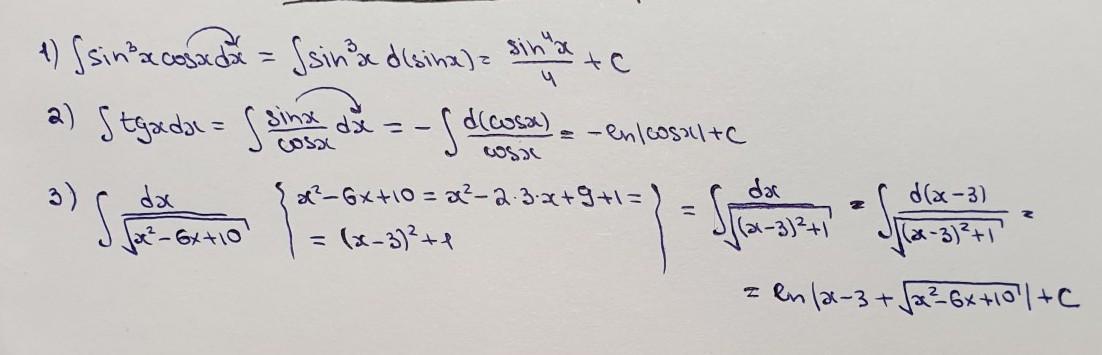 1) ∫sin³x cosx dx = ∫sin³x d(sinx) = sin⁴x/4 + C
2) ∫tgx dx = ∫ sinx/cosx dx = -∫ d(cosx)/cosx = -ln|cosx| + C
3) ∫ dx/√(x²-6x+10) { x²-6x+10 = x²-2·3·x+9+1 = = (x-3)²+1 } = ∫ dx/√((x-3)²+1) = ∫ d(x-3)/√((x-3)²+1) =
= ln|x-3+√(x²-6x+10)| + C